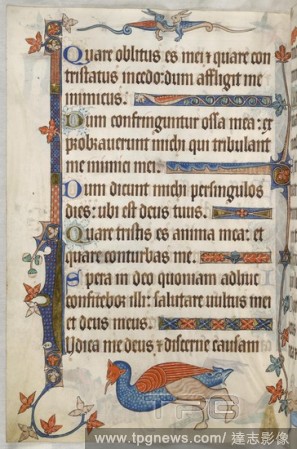 Quare oblitus es mei & quare con
tristatus incedo: dum affligit me
inimicus.
Dum confringuntur ossa mea: ex
probrauerunt michi qui tribulant
me inimici mei.
Dum dicunt michi per singulos
dies: ubi est deus tuus.
Quare tristis es anima mea: et
quare conturbas me.
Spera in deo quoniam adhuc
confitebor illi: salutare uultus mei
et deus meus.
Iudica me deus & discerne causam
TPG
www.tpgnews.com/達志影像